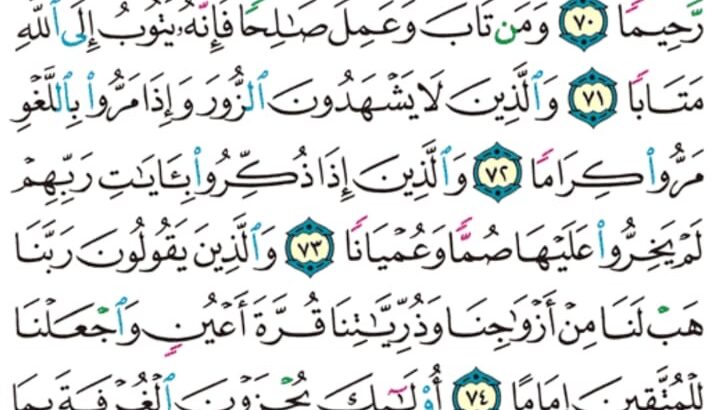 رَّحِيمًا ٧٠ وَمَن تَابَ وَعَمِلَ صَٰلِحًا فَإِنَّهُۥ يَتُوبُ إِلَى ٱللَّهِ
مَتَابًا ٧١ وَٱلَّذِينَ لَا يَشْهَدُونَ ٱلزُّورَ وَإِذَا مَرُّوا۟ بِٱللَّغْوِ
مَرُّوا۟ كِرَامًا ٧٢ وَٱلَّذِينَ إِذَا ذُكِّرُوا۟ بِـَٔايَٰتِ رَبِّهِمْ
لَمْ يَخِرُّوا۟ عَلَيْهَا صُمًّا وَعُمْيَانًا ٧٣ وَٱلَّذِينَ يَقُولُونَ رَبَّنَا
هَبْ لَنَا مِنْ أَزْوَٰجِنَا وَذُرِّيَّٰتِنَا قُرَّةَ أَعْيُنٍ وَٱجْعَلْنَا
لِلْمُتَّقِينَ إِمَامًا ٧٤ أُو۟لَٰٓئِكَ يُجْزَوْنَ ٱلْغُرْفَةَ بِمَا